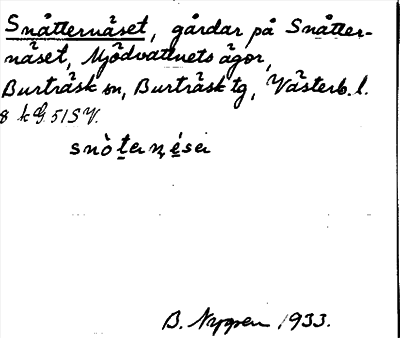 Snåtternäset, gårdar på Snåtter-
näset, Mjödvattnets ägor,
Burträsk sn, Burträsk tg, Västerb. l.
8 k G. 51 SV.
snòterṇéseı
B. Nygren 1933.